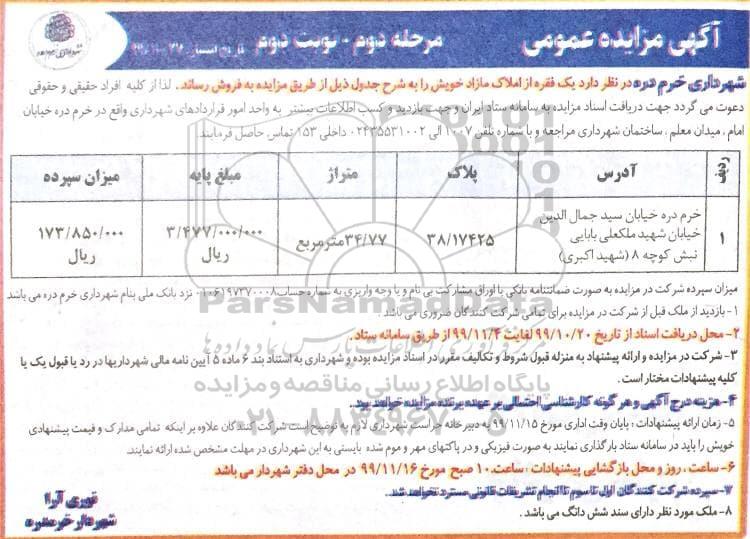 آگهی مزایده عمومی
مرحله دوم - نوبت دوم
تاریخ انتشار:
شهرداری خرمدره
شهرداری خرم دره در نظر دارد یک فقره از املاک مازاد خویش را به شرح جدول ذیل از طریق مزایده به فروش رساند. لذا از کلیه افراد حقیقی و حقوقی
دعوت می گردد جهت دریافت اسناد مزایده به سامانه ستاد ایران و جهت بازدید و کسب اطلاعات بیشتر به واحد امور قراردادهای شهرداری واقع در خرم دره خیابان
امام ، میدان معلم ، ساختمان شهرداری مراجعه و یا شماره تلفن ۱۰۰۷ الی ۰۲۴۳۵۵۳۱۰۰۲ داخلی ۱۵۳ تماس حاصل فرمایند.
ردیف آدرس پلاک متراژ مبلغ پایه میزان سپرده
۱ خرم دره خیابان سید جمال الدین خیابان شهید ملکعلی بابایی نبش کوچه ۸ (شهید اکبری) ۳۸/۱۷۴۲۵ ۳۴/۷۷مترمربع ۳/۴۷۷/۰۰۰/۰۰۰ ریال ۱۷۳/۸۵۰/۰۰۰ ریال
میزان سپرده شرکت در مزایده به صورت ضمانتنامه بانکی یا اوراق مشارکت بی نام و یا وجه واریزی به شماره حساب ۰۱۰۶۱۹۷۳۷۰۰۰۸ نزد بانک ملی بنام شهرداری خرم دره می باشد
۱- بازدید از ملک قبل از شرکت در مزایده برای تمامی شرکت کنندگان ضروری می باشد.
۲- محل دریافت اسناد از تاریخ ۹۹/۱۰/۲۰ لغایت ۹۹/۱۱/۴ از طریق سامانه ستاد.
۳- شرکت در مزایده و ارائه پیشنهاد به منزله قبول شروط و تکالیف مقرر در اسناد مزایده بوده و شهرداری به استناد بند ۶ ماده ۵ آیین نامه مالی شهرداریها در رد یا قبول یک یا
کلیه پیشنهادات مختار است.
۴- هزینه درج آگهی و هر گونه کارشناسی احتمالی بر عهده برنده مزایده خواهد بود.
۵- زمان ارائه پیشنهادات : پایان وقت اداری مورخ ۹۹/۱۱/۱۵ به دبیرخانه حراست شهرداری لازم به توضیح است شرکت کنندگان علاوه بر اینکه تمامی مدارک و قیمت پیشنهادی
خویش را باید در سامانه ستاد بارگذاری نمایند به صورت فیزیکی و در پاکتهای مهر و موم شده بایستی به این شهرداری در مهلت مشخص شده ارائه نمایند.
۶- ساعت ، روز و محل بازگشایی پیشنهادات : ساعت ۱۰ صبح مورخ ۹۹/۱۱/۱۶ در محل دفتر شهردار می باشد
۷- سپرده شرکت کنندگان اول تا سوم تا انجام تشریفات قانونی مسترد نخواهد شد.
۸- ملک مورد نظر دارای سند شش دانگ می باشد .
نوری آرا
شهردار خرمدره
ParsNamadData
پایگاه اطلاع رسانی مناقصه و مزایده
۰۲۱-۸۸۳۴۹۶۷۰-۵